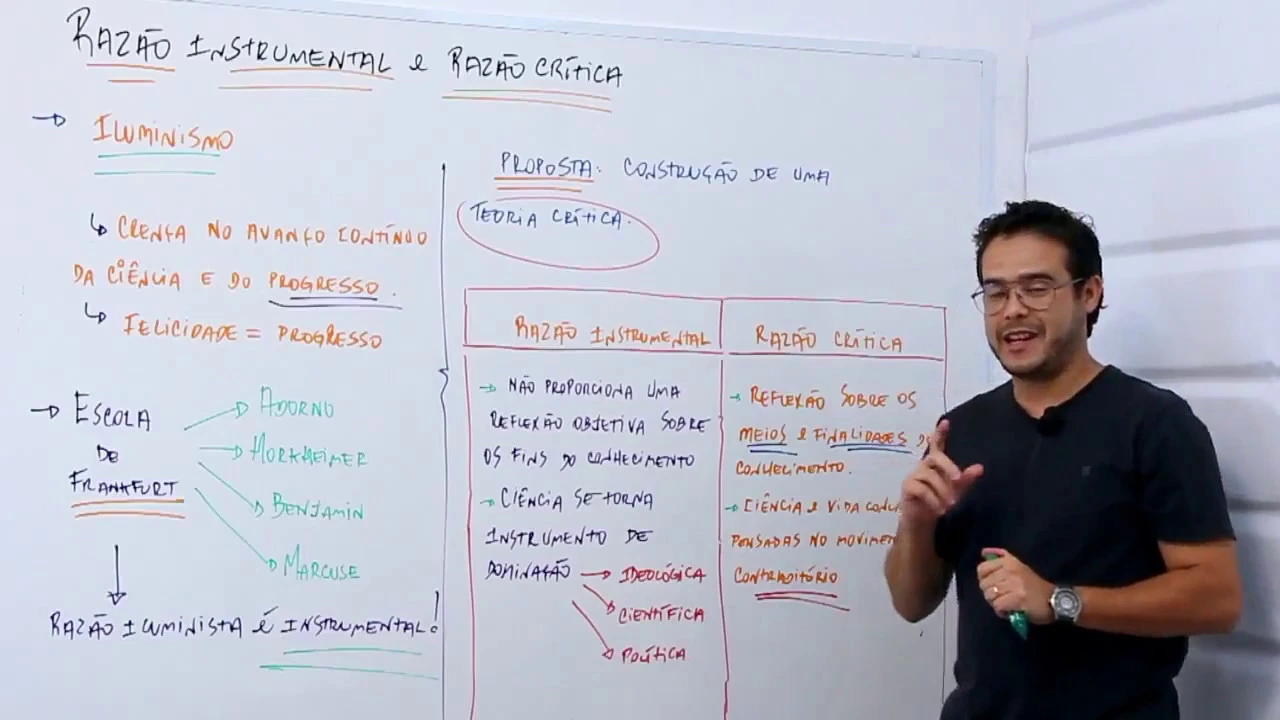 RAZÃO INSTRUMENTAL e RAZÃO CRÍTICA
ILUMINISMO
CRENÇA NO AVANÇO CONTÍNUO
DA CIÊNCIA E DO PROGRESSO.
FELICIDADE = PROGRESSO
ESCOLA
DE
FRANKFURT
ADORNO
HORKHEIMER
BENJAMIN
MARCUSE
RAZÃO ILUMINISTA É INSTRUMENTAL!
PROPOSTA: CONSTRUÇÃO DE UMA
TEORIA CRÍTICA.
RAZÃO INSTRUMENTAL
NÃO PROPORCIONA UMA
REFLEXÃO OBJETIVA SOBRE
OS FINS DO CONHECIMENTO
CIÊNCIA SE TORNA
INSTRUMENTO DE
DOMINAÇÃO → IDEOLÓGICA
CIENTÍFICA
POLÍTICA
RAZÃO CRÍTICA
REFLEXÃO SOBRE OS
MEIOS e FINALIDADES
CONHECIMENTO.
CIÊNCIA e VIDA
PENSADAS NO
CONTRADITÓRIO